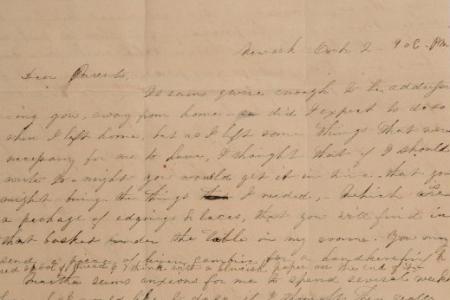 Newark Oct 2 9 oC. PM.
Dear Parents,
It seams queer enough to be address
ing you, away from home. did I expect to do so
when I left home, but as I left some things that were
necessary for me to have, I thought that if I should
write to-night you would get it in time that you
might bring the things I needed, - Which are
a package of edgings & laces, that you will find in
that basket under the table in my roome. You may
send a piece of linen cambric for a handkerchief
red spool of thread I think with a blueish paper on the end of
Martha seems anxious for me to spend several weeks